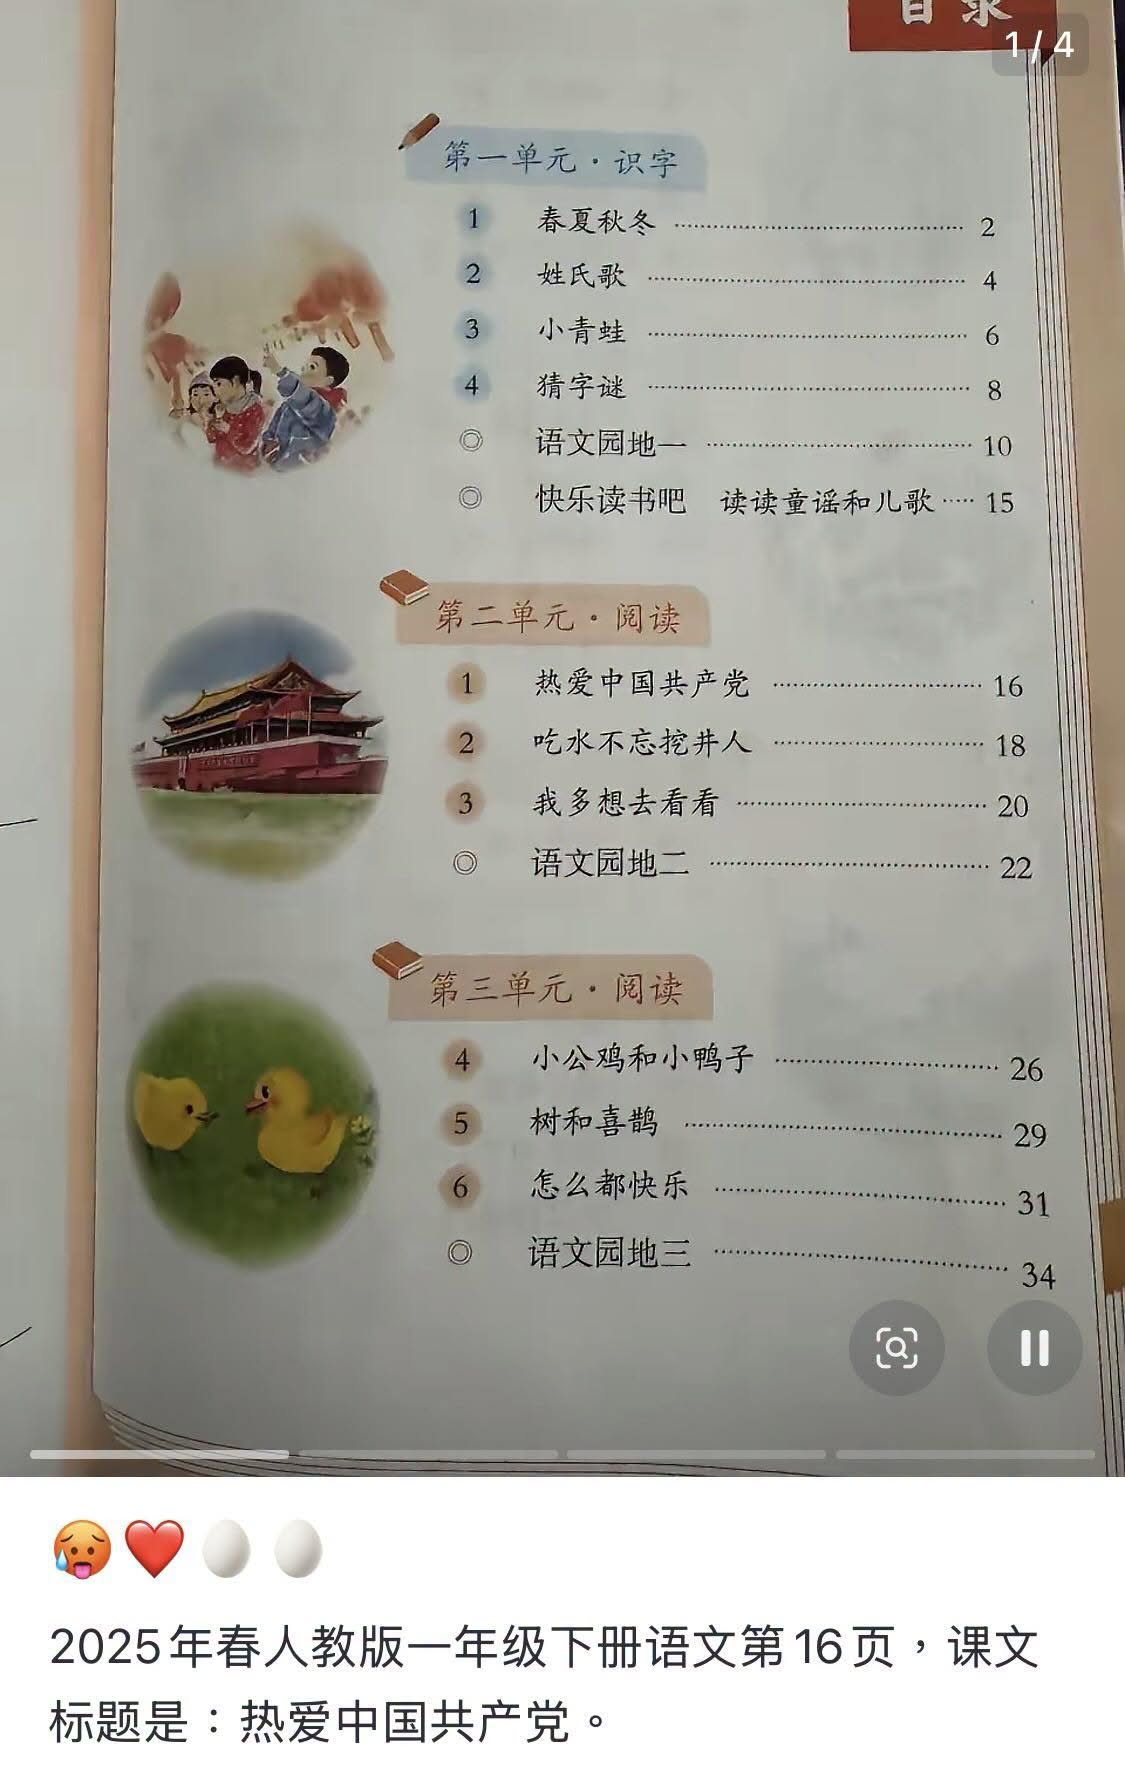 目录
1/4
第一单元·识字
1 春夏秋冬 2
2 姓氏歌 4
3 小青蛙 6
4 猜字谜 8
◎ 语文园地一 10
◎ 快乐读书吧 读读童谣和儿歌 15
第二单元·阅读
1 热爱中国共产党 16
2 吃水不忘挖井人 18
3 我多想去看看 20
◎ 语文园地二 22
第三单元·阅读
4 小公鸡和小鸭子 26
5 树和喜鹊 29
6 怎么都快乐 31
◎ 语文园地三 34
🥵❤️🥚🥚
2025年春人教版一年级下册语文第16页，课文
标题是：热爱中国共产党。